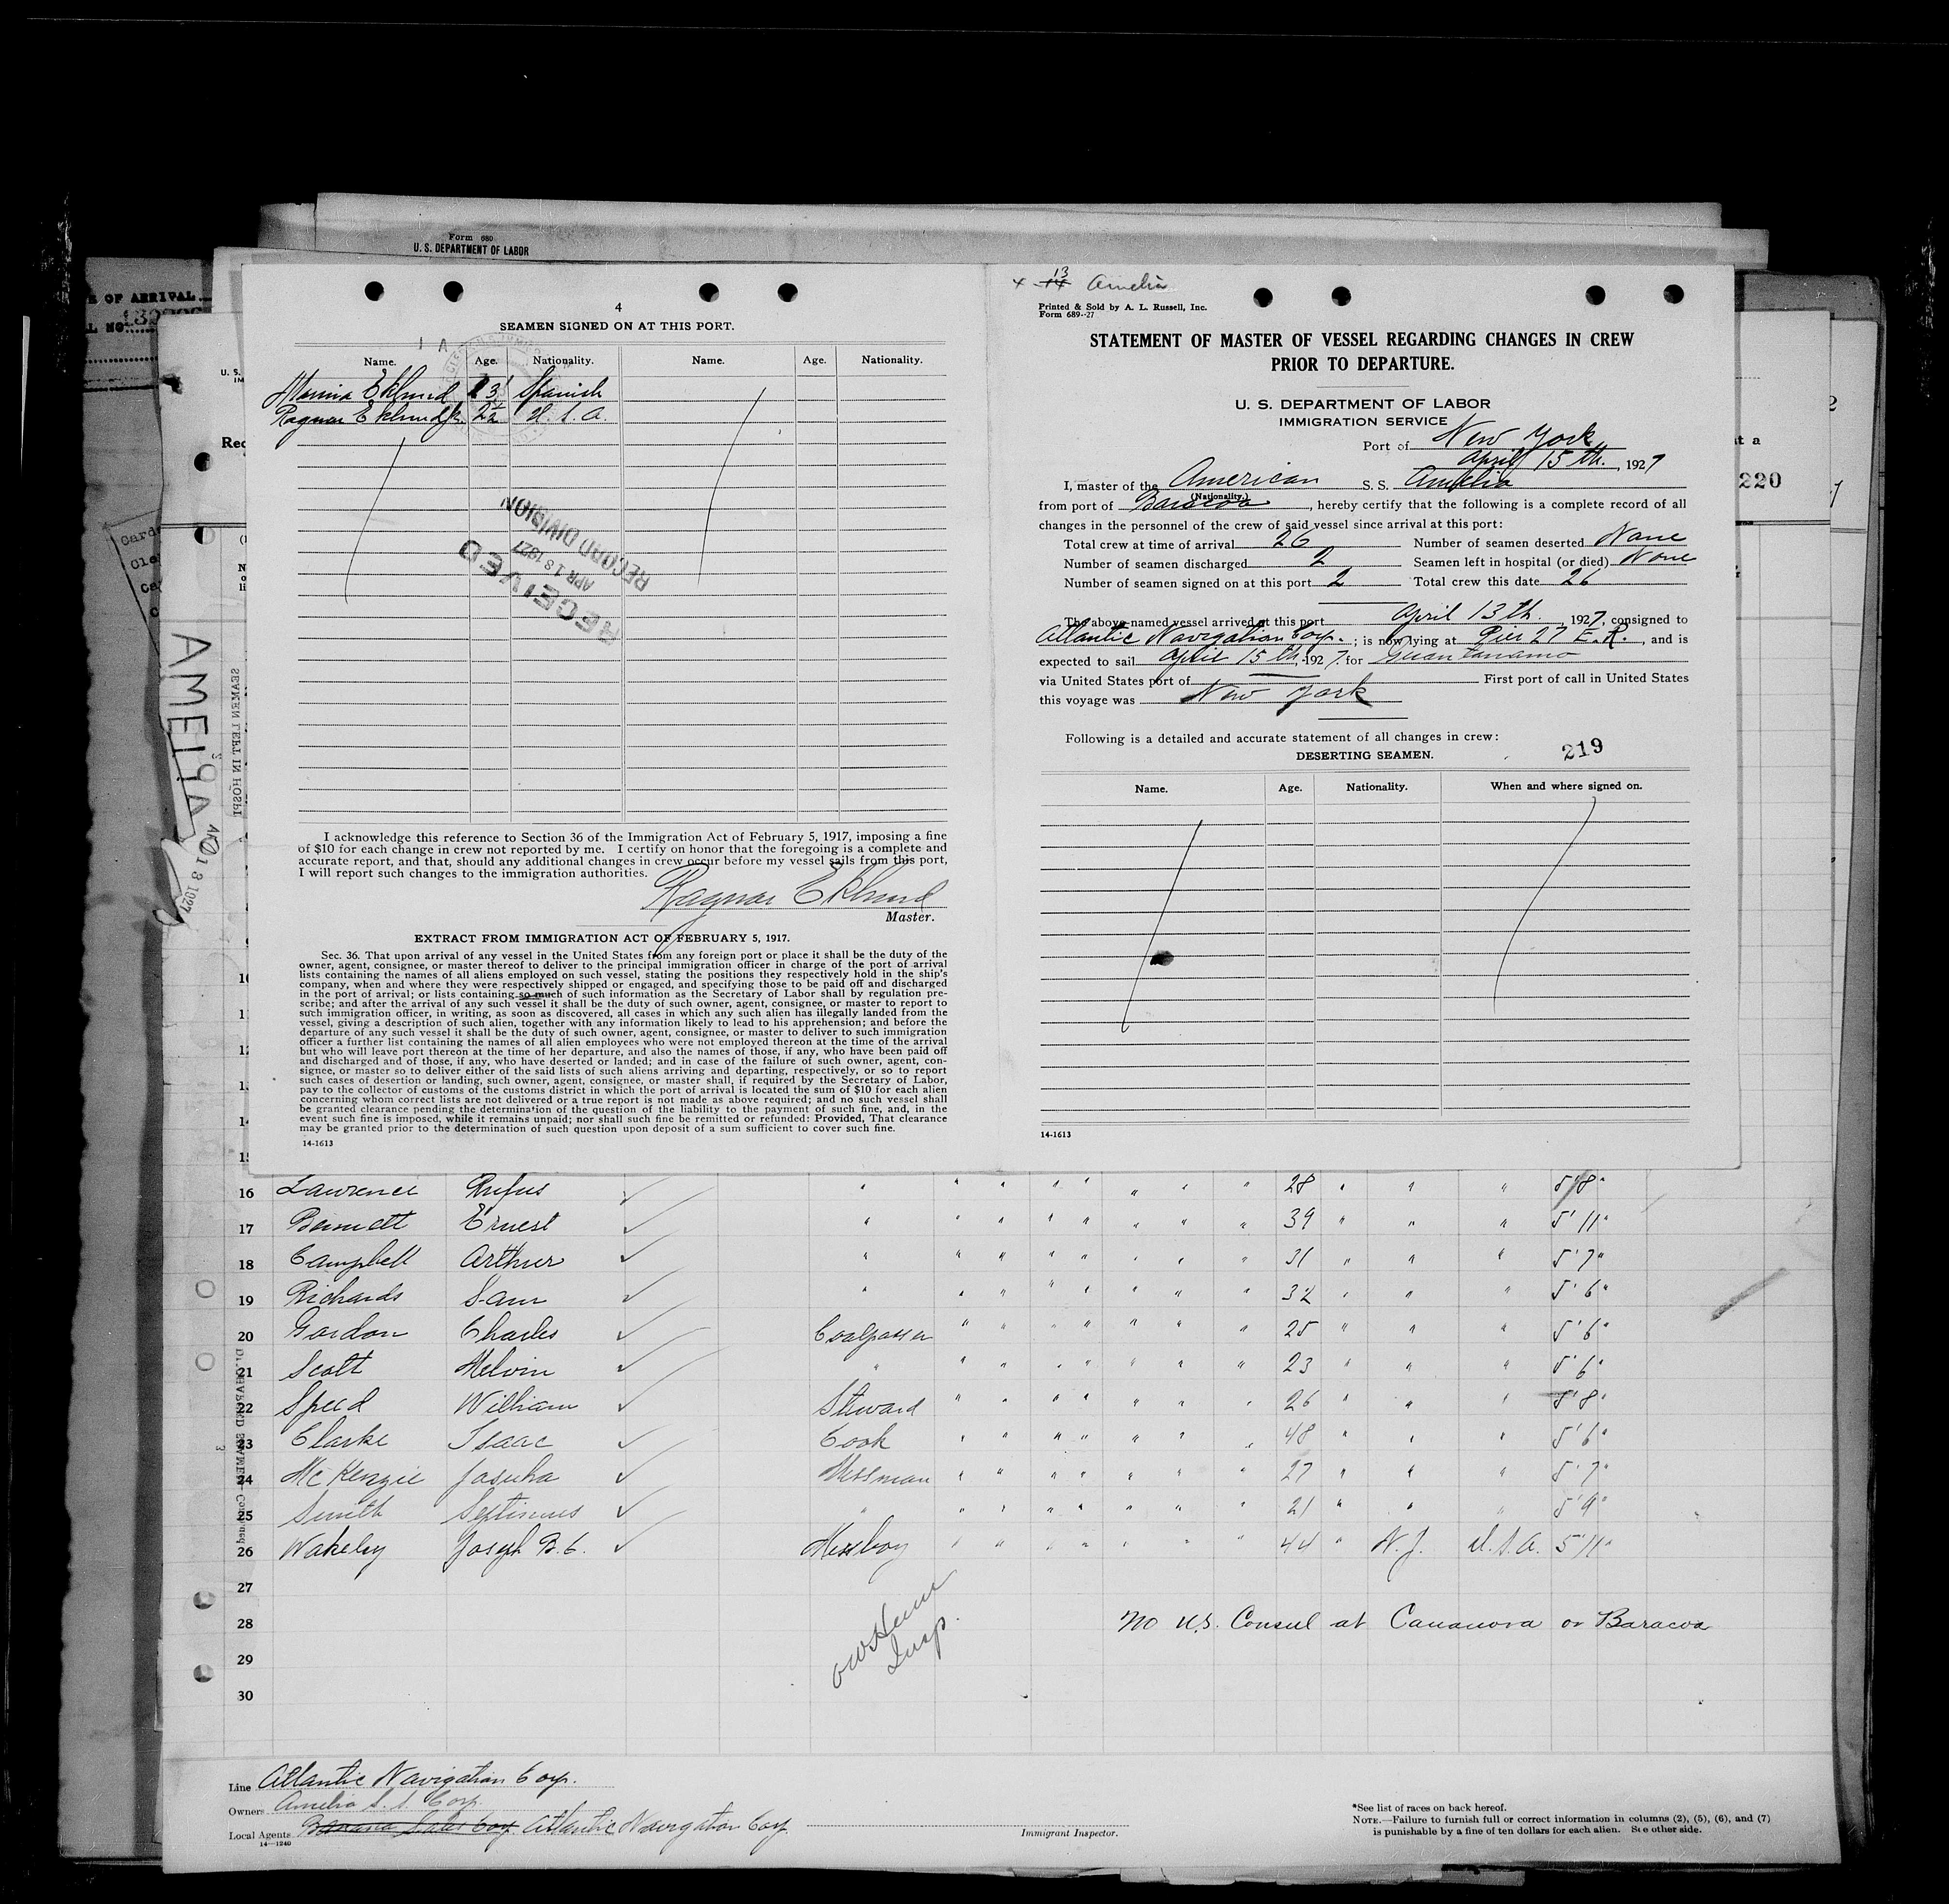 Form 680
U. S. DEPARTMENT OF LABOR
E OF ARRIVAL
L NO.
U. S.
IM
Rec
Card
Cle
Ca
AMELIA
SEAMEN LEFT IN HOSPI
at a
220
4
SEAMEN SIGNED ON AT THIS PORT.
Name. Age. Nationality. Name. Age. Nationality.
Eklund 23 Spanish
Ragnar Eklund Jr. 2½ U. S. A.
RECEIVED
APR 18 1927
RECORD DIVISION
I acknowledge this reference to Section 36 of the Immigration Act of February 5, 1917, imposing a fine
of $10 for each change in crew not reported by me. I certify on honor that the foregoing is a complete and
accurate report, and that, should any additional changes in crew occur before my vessel sails from this port,
I will report such changes to the immigration authorities.
Ragnar Eklund
Master.
EXTRACT FROM IMMIGRATION ACT OF FEBRUARY 5, 1917.
Sec. 36. That upon arrival of any vessel in the United States from any foreign port or place it shall be the duty of the
owner, agent, consignee, or master thereof to deliver to the principal immigration officer in charge of the port of arrival
lists containing the names of all aliens employed on such vessel, stating the positions they respectively hold in the ship's
company, when and where they were respectively shipped or engaged, and specifying those to be paid off and discharged
in the port of arrival; or lists containing so much of such information as the Secretary of Labor shall by regulation pre-
scribe; and after the arrival of any such vessel it shall be the duty of such owner, agent, consignee, or master to report to
such immigration officer, in writing, as soon as discovered, all cases in which any such alien has illegally landed from the
vessel, giving a description of such alien, together with any information likely to lead to his apprehension; and before the
departure of any such vessel it shall be the duty of such owner, agent, consignee, or master to deliver to such immigration
officer a further list containing the names of all alien employees who were not employed thereon at the time of the arrival
but who will leave port thereon at the time of her departure, and also the names of those, if any, who have been paid off
and discharged and of those, if any, who have deserted or landed; and in case of the failure of such owner, agent, con-
signee, or master so to deliver either of the said lists of such aliens arriving and departing, respectively, or so to report
such cases of desertion or landing, such owner, agent, consignee, or master shall, if required by the Secretary of Labor,
pay to the collector of customs of the customs district in which the port of arrival is located the sum of $10 for each alien
concerning whom correct lists are not delivered or a true report is not made as above required; and no such vessel shall
be granted clearance pending the determination of the question of the liability to the payment of such fine, and, in the
event such fine is imposed, while it remains unpaid; nor shall such fine be remitted or refunded: Provided, That clearance
may be granted prior to the determination of such question upon deposit of a sum sufficient to cover such fine.
14-1613
x 14 13 Amelia
Printed & Sold by A. L. Russell, Inc.
Form 689--27
STATEMENT OF MASTER OF VESSEL REGARDING CHANGES IN CREW
PRIOR TO DEPARTURE.
U. S. DEPARTMENT OF LABOR
IMMIGRATION SERVICE
Port of New York
April 15th. , 1927
I, master of the American S. S. Amelia
(Nationality.)
from port of Baracoa , hereby certify that the following is a complete record of all
changes in the personnel of the crew of said vessel since arrival at this port:
Total crew at time of arrival 26 Number of seamen deserted None
Number of seamen discharged 2 Seamen left in hospital (or died) None
Number of seamen signed on at this port 2 Total crew this date 26
The above-named vessel arrived at this port April 13th. 1927, consigned to
Atlantic Navigation Corp. ; is now lying at Pier 27 E. R. , and is
expected to sail April 15th. 1927. for Guantanamo
via United States port of First port of call in United States
this voyage was New York
Following is a detailed and accurate statement of all changes in crew:
DESERTING SEAMEN.
219
Name. Age. Nationality. When and where signed on.
14-1613
16 Lawrence Rufus ✓ " " " " " " " " 28 " " " 5'8"
17 Bennett Ernest ✓ " " " " " " " " 39 " " " 5'11"
18 Campbell Arthur ✓ " " " " " " " " 31 " " " 5'7"
19 Richards Sam ✓ " " " " " " " " 32 " " " 5'6"
20 Gordon Charles ✓ Coalpasser " " " " " " " 25 " " " 5'6"
21 Scott Melvin ✓ " " " " " " " " 23 " " " 5'6"
22 Speed William ✓ Steward " " " " " " " 26 " " " 5'8"
23 Clarke Isaac ✓ Cook " " " " " " " 48 " " " 5'6"
24 McKenzie Josuha ✓ Messman " " " " " " " 27 " " " 5'7"
25 Smith Septimus ✓ " " " " " " " " 21 " " " 5'9"
26 Wakeley Joseph B. C. ✓ Messboy " " " " " " " 44 " N. J. U.S.A. 5'11"
27
28 No U.S. Consul at Cananova or Baracoa
29
30
Insp.
Line Atlantic Navigation Corp.
Owners Amelia S. S. Corp.
Local Agents Banana Sales Corp. Atlantic Navigation Corp.
14—1240
Immigrant Inspector.
*See list of races on back hereof.
NOTE.—Failure to furnish full or correct information in columns (2), (5), (6), and (7)
is punishable by a fine of ten dollars for each alien. See other side.